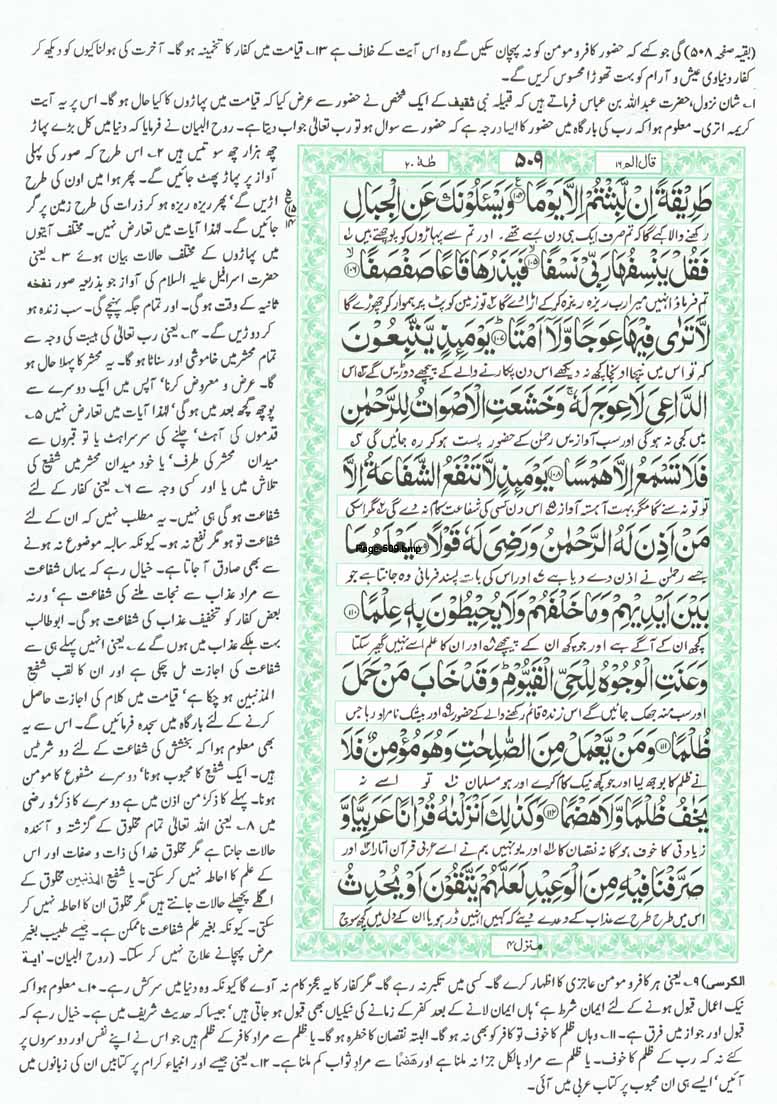 (بقیہ صفحہ ۵۰۸) گی جو کہے کہ حضور کافر و مومن کو نہ پہچان سکیں گے وہ اس آیت کے خلاف ہے ۱۳۔ قیامت میں کفار کا تخمینہ ہو گا۔ آخرت کی ہولناکیوں کو دیکھ کر
کفار دنیاوی عیش و آرام کو بہت تھوڑا محسوس کریں گے۔
۱۔ شان نزول، حضرت عبداللہ بن عباس فرماتے ہیں کہ قبیلہ نبی ثقیف کے ایک شخص نے حضور سے عرض کیا کہ قیامت میں پہاڑوں کا کیا حال ہو گا۔ اس پر یہ آیت
کریمہ اتری۔ معلوم ہوا کہ رب کی بارگاہ میں حضور کا ایسا درجہ ہے کہ حضور سے سوال ہو تو رب تعالیٰ جواب دیتا ہے۔ روح البیان نے فرمایا کہ دنیا میں کل بڑے پہاڑ
چھ ہزار چھ سو تیس ہیں ۲۔ اس طرح کہ صور کی پہلی
آواز پر پہاڑ پھٹ جائیں گے۔ پھر ہوا میں اون کی طرح
اڑیں گے' پھر ریزہ ریزہ ہو کر ذرات کی طرح زمین پر گر
جائیں گے۔ لہٰذا آیات میں تعارض نہیں۔ مختلف آیتوں
میں پہاڑوں کے مختلف حالات بیان ہوئے ۳۔ یعنی
حضرت اسرافیل علیہ السلام کی آواز جو بذریعہ صور نفخہ
ثانیہ کے وقت ہو گی۔ اور تمام جگہ پہنچے گی۔ سب زندہ ہو
کر دوڑیں گے۔ ۴۔ یعنی رب تعالیٰ کی ہیبت کی وجہ سے
تمام محشر میں خاموشی اور سناٹا ہو گا۔ یہ محشر کا پہلا حال ہو
گا۔ عرض و معروض کرنا' آپس میں ایک دوسرے سے
پوچھ گچھ بعد میں ہو گی' لہٰذا آیات میں تعارض نہیں ۵۔
قدموں کی آہٹ' چلنے کی سرسراہٹ یا تو قبروں سے
میدان محشر کی طرف' یا خود میدان محشر میں شفیع کی
تلاش میں یا اور کسی وجہ سے ۶۔ یعنی کفار کے لئے
شفاعت ہو گی ہی نہیں۔ یہ مطلب نہیں کہ ان کے لئے
شفاعت تو ہو مگر نفع نہ ہو۔ کیونکہ سالبہ موضوع نہ ہونے
سے بھی صادق آ جاتا ہے۔ خیال رہے کہ یہاں شفاعت
سے مراد عذاب سے نجات ملنے کی شفاعت ہے' ورنہ
بعض کفار کو تخفیف عذاب کی شفاعت ہو گی۔ ابوطالب
بہت ہلکے عذاب میں ہوں گے ۷۔ یعنی انہیں پہلے ہی سے
شفاعت کی اجازت مل چکی ہے اور ان کا لقب شفیع
المذنبین ہو چکا ہے' قیامت میں کلام کی اجازت حاصل
کرنے کے لئے بارگاہ میں سجدہ فرمائیں گے۔ اس سے یہ
بھی معلوم ہوا کہ بخشش کی شفاعت کے لئے دو شرطیں
ہیں۔ ایک شفیع کا محبوب ہونا' دوسرے مشفوع کا مومن
ہونا۔ پہلے کا ذکر من اذن میں ہے دوسرے کا ذکر و رضی
میں ۸۔ یعنی اللہ تعالیٰ تمام مخلوق کے گزشتہ و آئندہ
حالات جانتا ہے مگر مخلوق خدا کی ذات و صفات اور اس
کے علم کا احاطہ نہیں کر سکتی۔ یا شفیع المذنبین مخلوق کے
اگلے پچھلے حالات جانتے ہیں مگر مخلوق ان کا احاطہ نہیں کر
سکتی۔ کیونکہ بغیر علم شفاعت ناممکن ہے۔ جیسے طبیب بغیر
مرض پہچانے علاج نہیں کر سکتا۔ (روح البیان۔ آیۃ
قال الم ۱۶
۵۰۹
طٰہٰ ۲۰
طَرِيقَةً اِنْ لَّبِثْتُمْ اِلَّا يَوْمًا ۱۰۴ وَيَسْـَٔلُوْنَكَ عَنِ الْجِبَالِ
رکھنے والا کہے گا کہ تم صرف ایک ہی دن رہے تھے۔ اور تم سے پہاڑوں کو پوچھتے ہیں ۱
فَقُلْ يَنْسِفُهَا رَبِّيْ نَسْفًا ۱۰۵ فَيَذَرُهَا قَاعًا صَفْصَفًا ۱۰۶
تم فرماؤ انہیں میرا رب ریزہ ریزہ کر کے اڑا دے گا ۲ تو زمین کو پٹ پر ہموار کر چھوڑے گا
لَّا تَرٰى فِيْهَا عِوَجًا وَّلَآ اَمْتًا ۱۰۷ يَوْمَئِذٍ يَّتَّبِعُوْنَ
کہ تو اس میں نیچا اونچا کچھ نہ دیکھے اس دن پکارنے والے کے پیچھے دوڑیں گے ۳ اس
الدَّاعِيَ لَا عِوَجَ لَهٗ وَخَشَعَتِ الْاَصْوَاتُ لِلرَّحْمٰنِ
میں کجی نہ ہو گی اور سب آوازیں رحمٰن کے حضور پست ہو کر رہ جائیں گی ۴
فَلَا تَسْمَعُ اِلَّا هَمْسًا ۱۰۸ يَوْمَئِذٍ لَّا تَنْفَعُ الشَّفَاعَةُ اِلَّا
تو تو نہ سنے گا مگر بہت آہستہ آواز ۵ اس دن کسی کی شفاعت کام نہ دے گی ۶ مگر اس کی
مَنْ اَذِنَ لَهُ الرَّحْمٰنُ وَرَضِيَ لَهٗ قَوْلًا يَعْلَمُ مَا
Page-509.bmp
جسے رحمٰن نے اذن دے دیا ہے ۷ اور اس کی بات پسند فرمائی وہ جانتا ہے جو
بَيْنَ اَيْدِيْهِمْ وَمَا خَلْفَهُمْ وَلَا يُحِيْطُوْنَ بِهٖ عِلْمًا ۱۱۰
کچھ ان کے آگے ہے اور جو کچھ ان کے پیچھے ۸ اور ان کا علم اسے نہیں گھیر سکتا
وَعَنَتِ الْوُجُوْهُ لِلْحَيِّ الْقَيُّوْمِ وَقَدْ خَابَ مَنْ حَمَلَ
اور سب منہ جھک جائیں گے اس زندہ قائم رکھنے والے کے حضور ۹ اور بیشک نامراد رہا جس
ظُلْمًا ۱۱۱ وَمَنْ يَّعْمَلْ مِنَ الصّٰلِحٰتِ وَهُوَ مُؤْمِنٌ فَلَا
نے ظلم کا بوجھ لیا اور جو کچھ نیک کام کرے اور ہو مسلمان ۱۰ تو اسے نہ
يَخٰفُ ظُلْمًا وَّلَا هَضْمًا ۱۱۲ وَكَذٰلِكَ اَنْزَلْنٰهُ قُرْاٰنًا عَرَبِيًّا وَّ
زیادتی کا خوف ہو گا نہ نقصان کا ۱۱ اور یونہیں ہم نے اسے عربی قرآن اتارا ۱۲ اور
صَرَّفْنَا فِيْهِ مِنَ الْوَعِيْدِ لَعَلَّهُمْ يَتَّقُوْنَ اَوْ يُحْدِثُ
اس میں طرح طرح سے عذاب کے وعدے دیئے کہ کہیں انہیں ڈر ہو یا ان کے دل میں کچھ سوچ
منزل ۴
الکرسی) ۹۔ یعنی ہر کافر و مومن عاجزی کا اظہار کرے گا۔ کسی میں تکبر نہ رہے گا۔ مگر کفار کا یہ عجز کام نہ آوے گا کیونکہ وہ دنیا میں سرکش رہے۔ ۱۰۔ معلوم ہوا کہ
نیک اعمال قبول ہونے کے لئے ایمان شرط ہے' ہاں ایمان لانے کے بعد کفر کے زمانے کی نیکیاں بھی قبول ہو جاتی ہیں' جیسا کہ حدیث شریف میں ہے۔ خیال رہے کہ
قبول اور جواز میں فرق ہے۔ ۱۱۔ وہاں ظلم کا خوف تو کافر کو بھی نہ ہو گا۔ البتہ نقصان کا خطرہ ہو گا۔ یا ظلم سے مراد کافر کے ظلم ہیں جو اس نے اپنے نفس اور دوسروں پر
کئے نہ کہ رب کے ظلم کا خوف۔ یا ظلم سے مراد بالکل جزا نہ ملنا ہے اور ھضماً سے مراد ثواب کم ملنا ہے۔ ۱۲۔ یعنی جیسے اور انبیاء کرام پر کتابیں ان کی زبانوں میں
آئیں' ایسے ہی ان محبوب پر کتاب عربی میں آئی۔